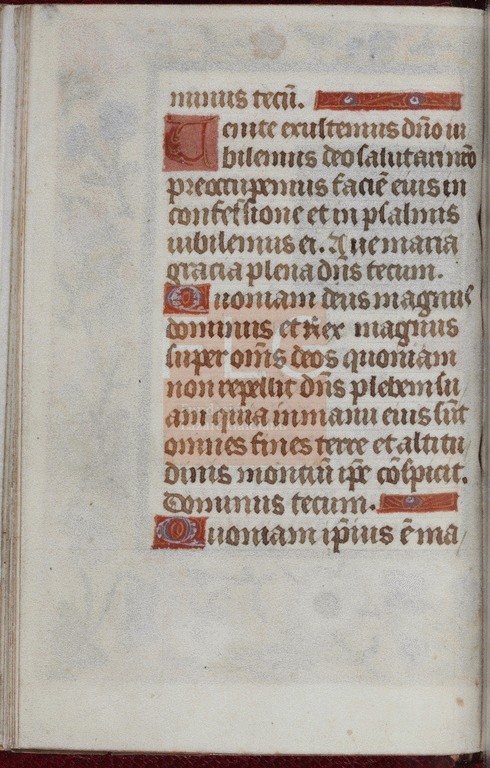 minus tecū.
Uenite exultemus dn̄o iu
bilemus deo salutari nr̄o
preoccupemus faciē eius in
confessione et in psalmis
iubilemus ei. Aue maria
gracia plena dn̄s tecum.
Quoniam deus magnus
dominus et Rex magnus
super om̄s deos quoniam
non repellit dn̄s plebem su
am quia in manu eius sūt
omnes fines terre et altitu
dinis montiū ip̄e cōspicit.
Dominus tecum.
Quoniam ip̄ius ē ma